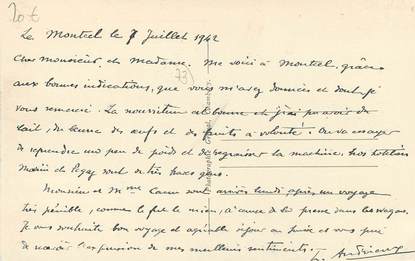 20 €
Le Montcel le 7 Juillet 1942
Cher monsieur et Madame. Me voici à Montcel, grâce
aux bonnes indications, que vous m'avez données et dont je
vous remercie. La nourriture est bonne et j'ai pu avoir du
lait, du beurre des œufs et des fruits à volonté. On va essayer
de reprendre un peu de poids et de regraisser la machine. Nos
et sont de très braves gens.
Monsieur et Mme sont arrivés lundi après un voyage
très pénible, comme le fut le mien, à cause de la presse dans les wagons.
Je vous souhaite bon voyage et agréable séjour au et vous prie
de l'expression de mes meilleurs sentiments.